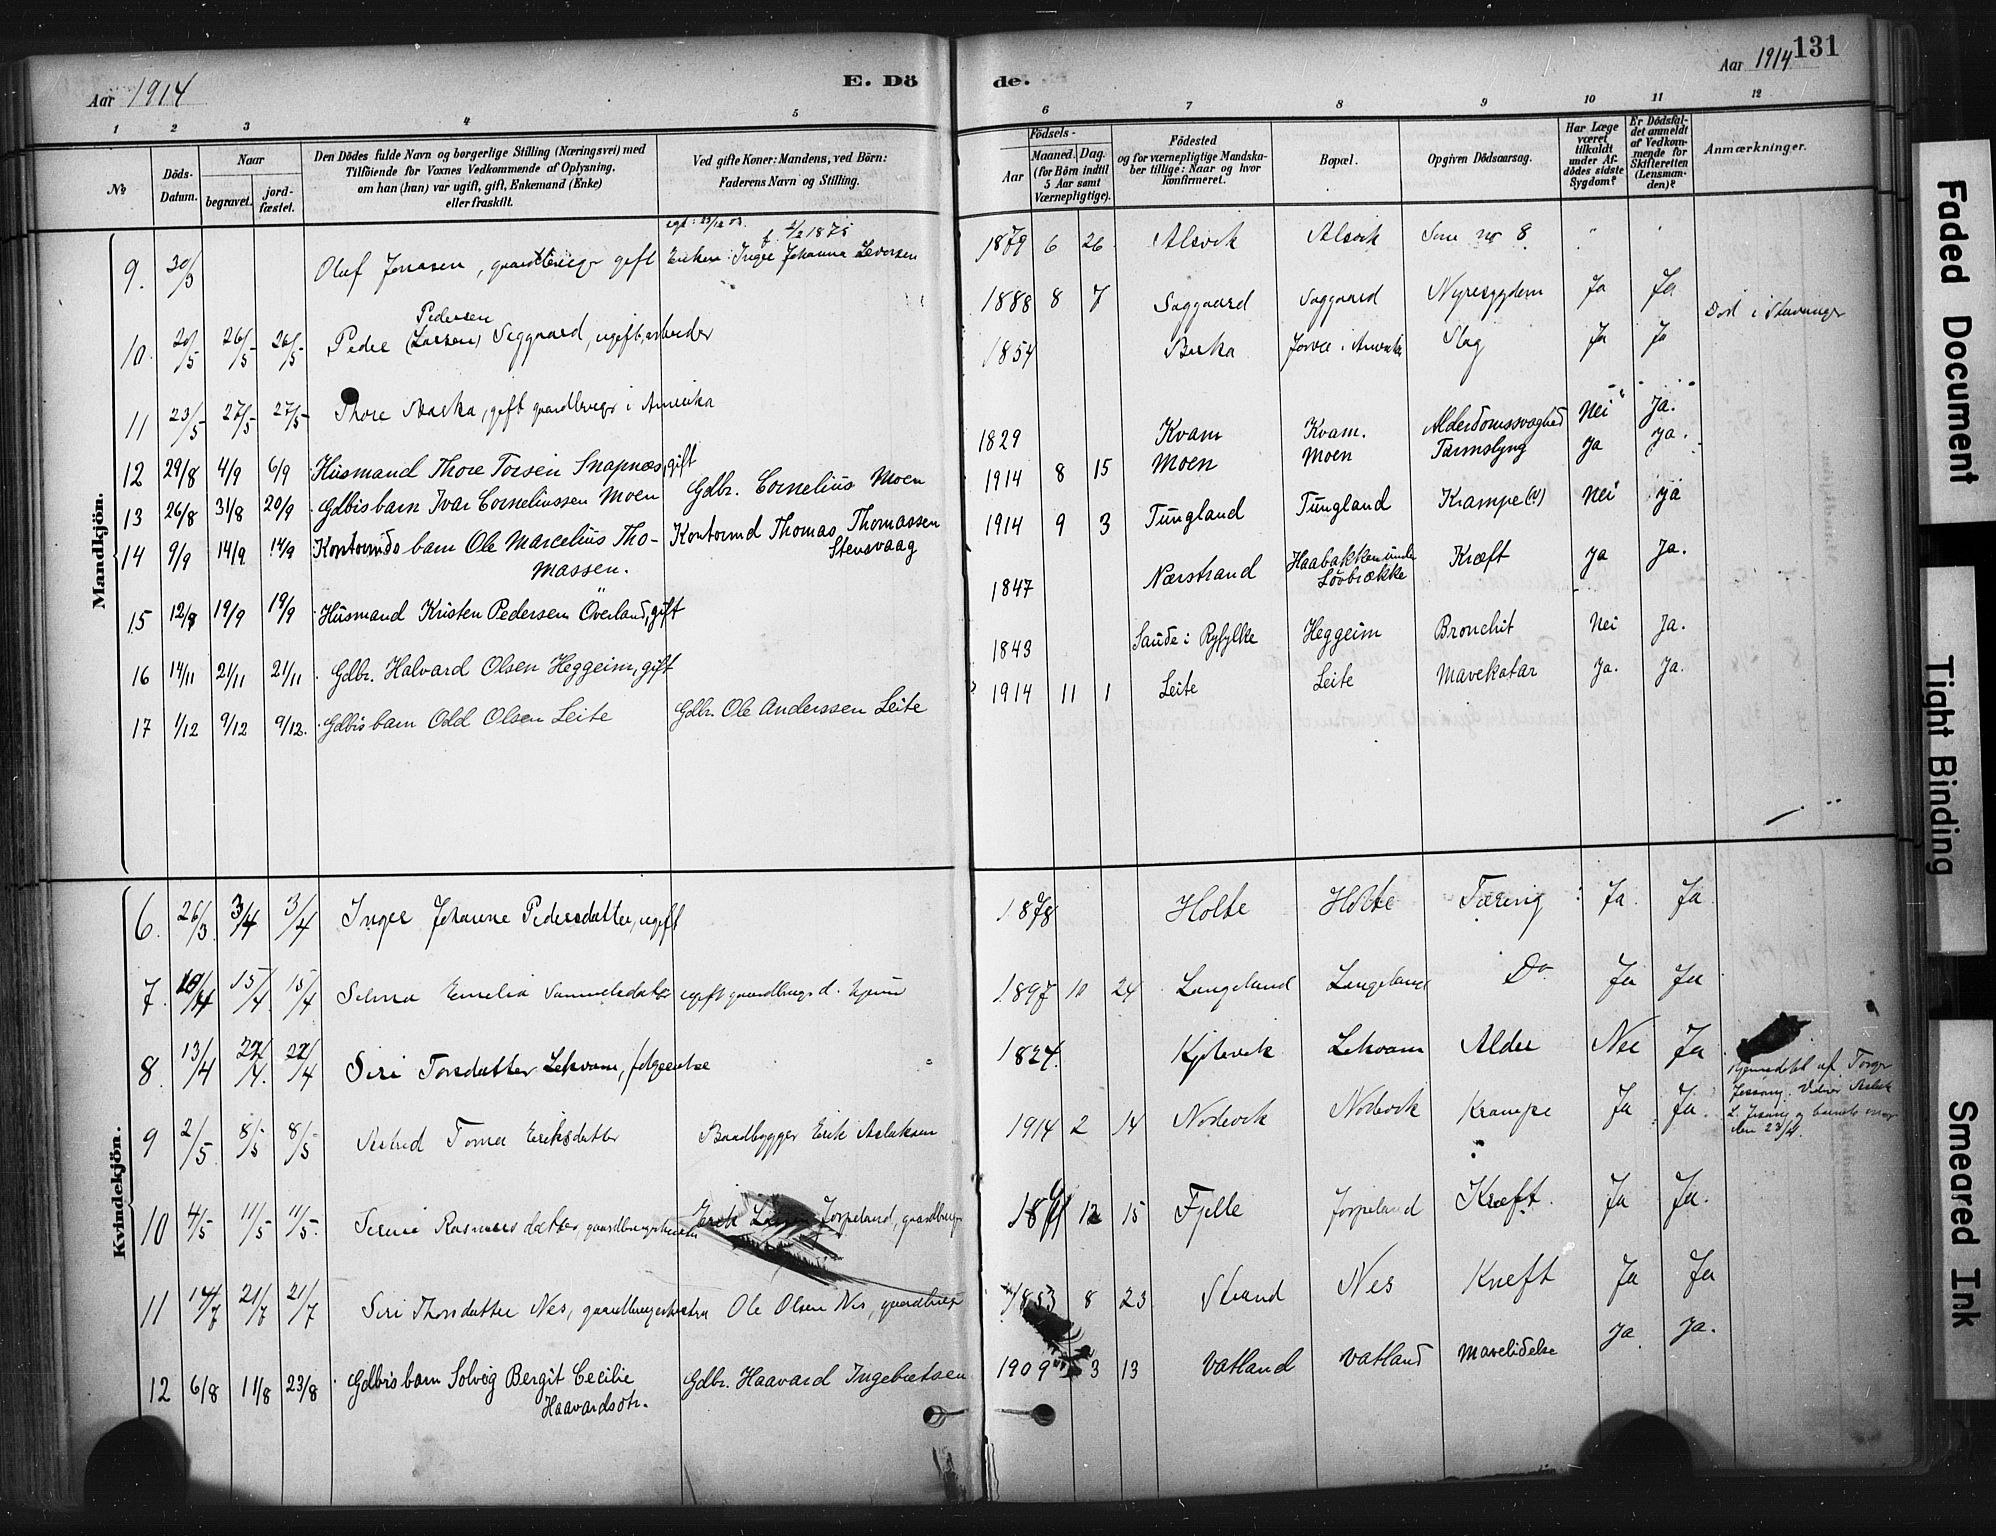 Aar 1914
E. Dö
de.
Aar 1914
131
1 2 3 4 5 6 7 8 9 10 11 12
№
Döds-
Datum.
Naar
begravet.
jord-
fæstet.
Den Dödes fulde Navn og borgerlige Stilling (Næringsvei) med
Tilföiende for Voxnes Vedkommende af Oplysning,
om han (hun) var ugift, gift, Enkemand (Enke)
eller fraskilt.
Ved gifte Koner: Mandens, ved Börn:
Faderens Navn og Stilling.
Födsels-
Aar
Maaned. Dag.
(for Börn indtil
5 Aar samt
Værnepligtige).
Födested
og for værnepligtige Mandska-
ber tillige: Naar og hvor
konfirmeret.
Bopæl.
Opgiven Dödsaarsag.
Har Læge
været
tilkaldt
under Af-
dödes sidste
Sygdom?
Er Dödsfal-
det anmeldt
af Vedkom-
mende for
Skifteretten
(Lensman-
den)?
Anmærkninger.
Mandkjön.
9. 30/3 Oluf Jonasen, gaardbruger gift Enken: Inger Johanna 1879 6 26 Alsvik Alsvik Som no 8
10. 20/5 26/5 26/5 Peder (Larsen) Pedersen Seggaard, ugift, arbeider 1888 8 7 Saggaard Saggaard Nyresygdom Ja Ja Död i Stavanger
11 23/5 27/5 27/5 Thore Barka, gift gaardbruger i Amerika 1854 Barka Slag Ja Ja
12 29/8 4/9 6/9 Husmand Thore Torsen Snapnæs, gift 1829 Kvam Kvam. Alderdomssvaghed Nei Ja.
13 26/8 31/8 20/9 Gdbrs barn Ivar Corneliussen Moen Gdbr. Cornelius Moen 1914 8 15 Moen Moen Tarmslyng Ja Ja.
14 9/9 14/9 14/9 Kontormds barn Ole Marcelius Tho-
massen. Kontormd Thomas Thomassen
Stensvaag 1914 9 3 Tungland Tungland Krampe (?) Nei Ja
15 12/8 19/9 19/9 Husmand Kristen Pedersen Överland, gift 1847 Nærstrand Haabakken under
Lövbrække Kræft Ja Ja.
16 14/11 21/11 21/11 Gdbr. Halvard Olsen Heggeim, gift 1843 Saude i Ryfylke Heggeim Bronchit Nei Ja.
17 1/12 9/12 9/12. Gdbrs barn Odd Olsen Leite Gdbr. Ole Anderssen Leite 1914 11 1 Leite Leite Mavekatar Ja. Ja.
Kvindekjön.
6. 26/3 3/4 3/4 Inger Johanne Pedersdatter, ugift 1878 Holte Holte Tæring Ja. Ja
7. 10/4 15/4 15/4 Selma Emelia Samuelsdatter ugift gaardbrugs d. 1897 10 24 Langeland Langeland Do Ja Ja
8 13/4 22/4. 22/4 Siri Torsdatter Lekvam, 1824. Lekvam Alder Nei Ja
9 2/5 8/5 8/5 Astrid Torna Eriksdatter Baadbygger Erik Aslaksen 1914 2 14 Nordvik Nordvik Krampe Ja Ja.
Hjemmedöbt af Torger
10 4/5 11/5 11/5. Serine Rasmusdatter, gaardbrugerhustru Erik Larsen Jörpeland, gaardbruger 12 15 Fjelle Jörpeland Kræft. Ja Ja.
11 14/7 21/7 21/7 Siri Thorsdatter Nes, gaardbrugerhustru Ole Olsen Nes, gaardbruger 1853 8 23 Strand Nes Kræft Ja Ja
12 6/8 11/8 23/8 Gdbrs barn Solveig Bergit Cecilie
Haavardsdtr. Gdbr. Haavard Ingebretsen 1909 3 13 Vatland Vatland Mavelidelse Ja Ja.
Faded Document
Tight Binding
Smeared Ink